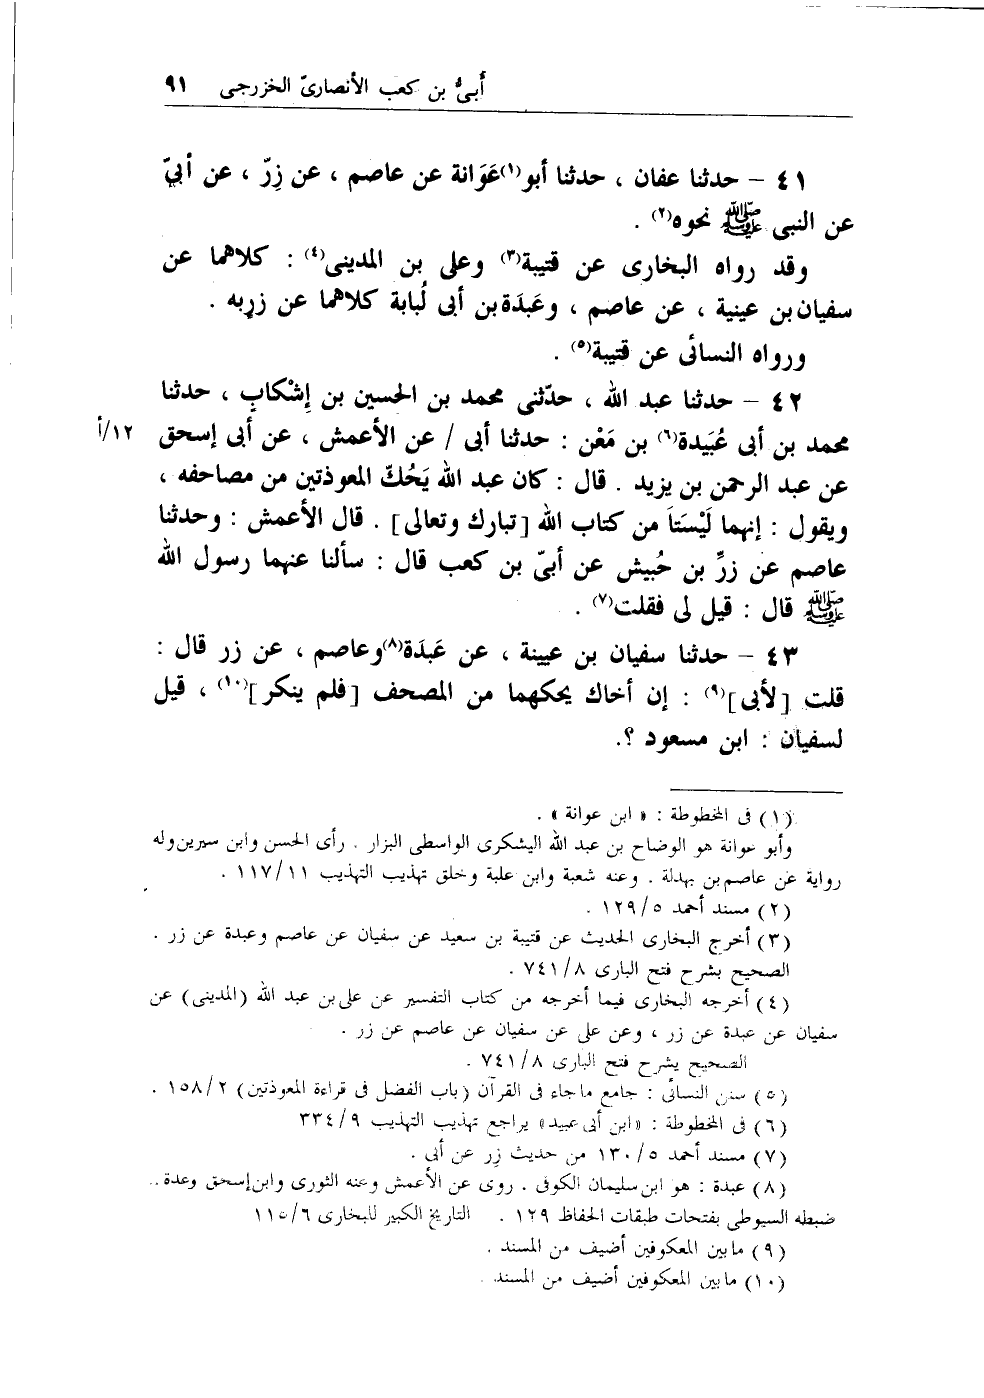 أبىُّ بن كعب الأنصارىّ الخزرجى ٩١
٤١ – حدثنا عفان ، حدثنا أبو(١)عَوَانة عن عاصم ، عن زِرّ ، عن أبيّ
عن النبى ﷺ نحوه(٢) .
وقد رواه البخارى عن قتيبة(٣) وعلى بن المدينى(٤) : كلاهما عن
سفيان بن عينية ، عن عاصم ، وعَبدَة بن أبى لُبابة كلاهما عن زربه .
ورواه النسائى عن قتيبة(٥) .
٤٢ – حدثنا عبد الله ، حدّثنى محمد بن الحسين بن إِشْكابٍ ، حدثنا
محمد بن أبى عُبَيدة(٦) بن مَعْن : حدثنا أبى / عن الأعمش ، عن أبى إسحق ١٢/أ
عن عبد الرحمن بن يزيد . قال : كان عبد الله يَحُكّ المعوذتين من مصاحفه ،
ويقول : إنهما لَيْستَا من كتاب الله [تبارك وتعالى] . قال الأعمش : وحدثنا
عاصم عن زرِّ بن حُبيش عن أبىّ بن كعب قال : سألنا عنهما رسول الله
ﷺ قال : قيل لى فقلت(٧) .
٤٣ – حدثنا سفيان بن عيينة ، عن عَبدَة(٨)وعاصم ، عن زر قال :
قلت [لأبى](٩) : إن أخاك يحكهما من المصحف [فلم ينكر](١٠) ، قيل
لسفيان : ابن مسعود ؟.
(١) فى المخطوطة : « ابن عوانة » .
وأبو عوانة هو الوضاح بن عبد الله اليشكرى الواسطى البزار . رأى الحسن وابن سيرين وله
رواية عن عاصم بن بهدلة . وعنه شعبة وابن علية وخلق تهذيب التهذيب ١١٧/١١ .
(٢) مسند أحمد ١٢٩/٥ .
(٣) أخرج البخارى الحديث عن قتيبة بن سعيد عن سفيان عن عاصم وعبدة عن زر .
الصحيح بشرح فتح البارى ٧٤١/٨ .
(٤) أخرجه البخارى فيما أخرجه من كتاب التفسير عن على بن عبد الله (المدينى) عن
سفيان عن عبدة عن زر ، وعن على عن سفيان عن عاصم عن زر .
الصحيح بشرح فتح البارى ٧٤١/٨ .
(٥) سنن النسائى : جامع ما جاء فى القرآن (باب الفضل فى قراءة المعوذتين) ١٥٨/٢ .
(٦) فى المخطوطة : «ابن أبى عبيد» يراجع تهذيب التهذيب ٣٣٤/٩
(٧) مسند أحمد ١٣٠/٥ من حديث زر عن أبى .
(٨) عبدة : هو ابن سليمان الكوفى . روى عن الأعمش وعنه الثورى وابن إسحق وعدة ..
ضبطه السيوطى بفتحات طبقات الحفاظ ١٢٩ . التاريخ الكبير للبخارى ١١٥/٦
(٩) ما بين المعكوفين أضيف من المسند .
(١٠) ما بين المعكوفين أضيف من المسند .